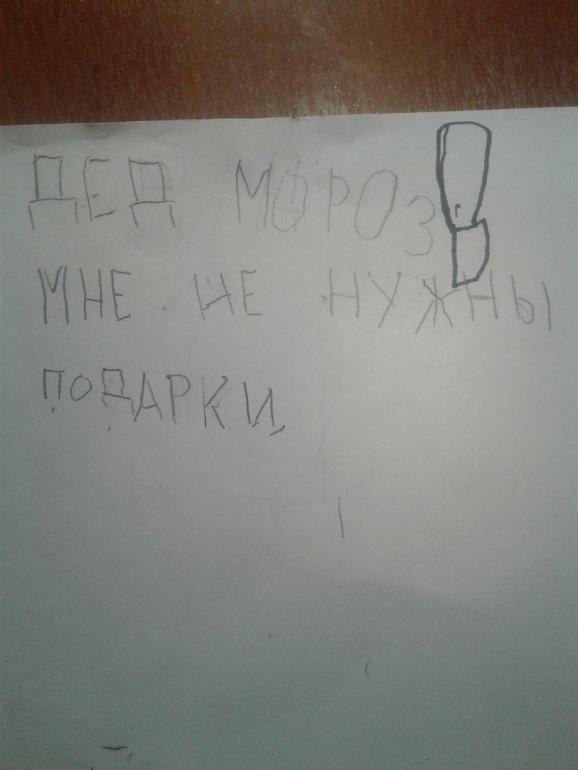 ДЕД МОРОЗ!
МНЕ НЕ НУЖНЫ
ПОДАРКИ,